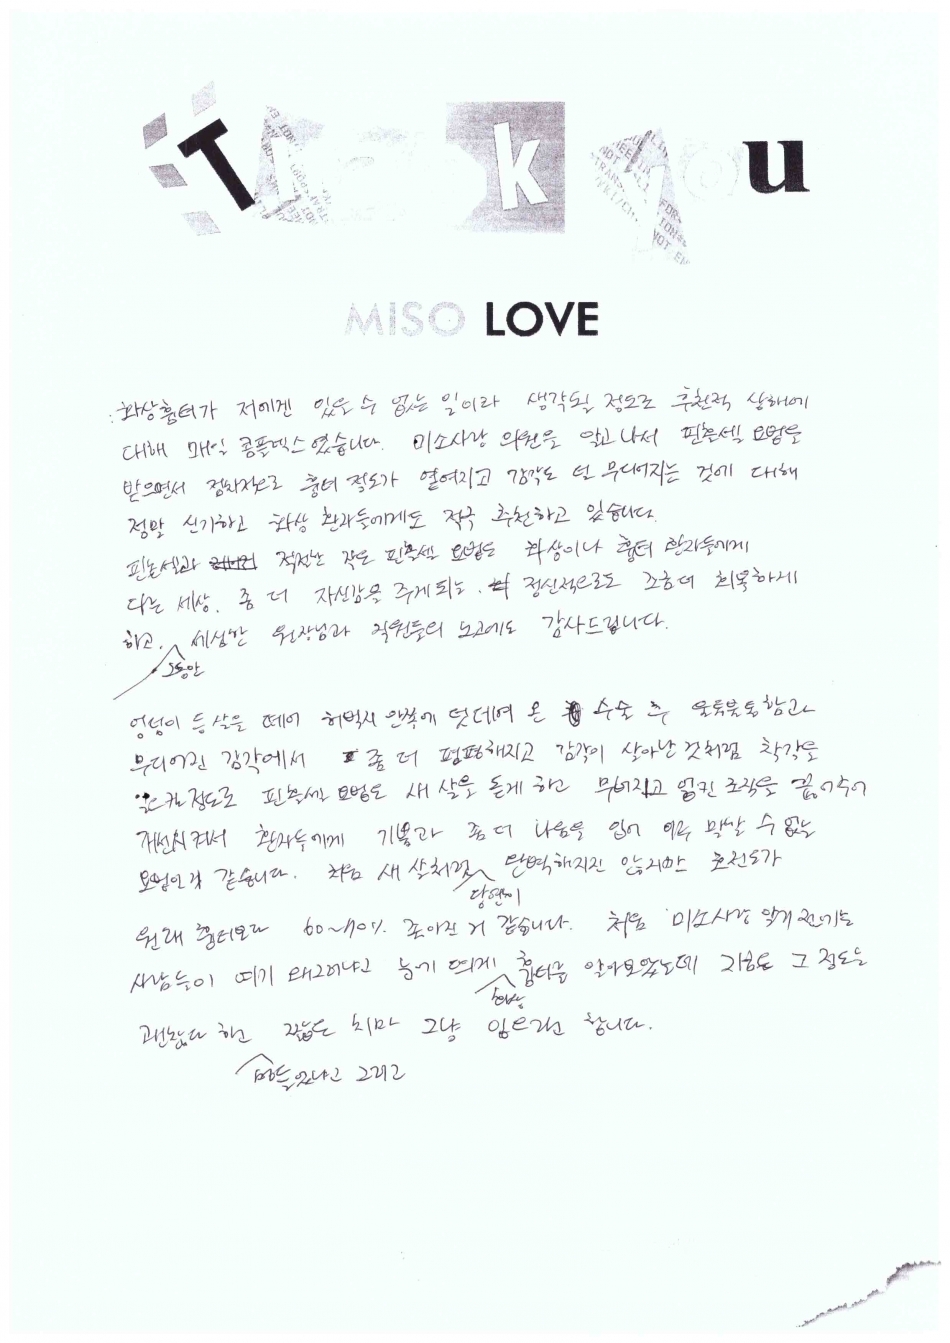 Thank you
MISO LOVE
화상흉터가 저에겐 있을 수 없는 일이라 생각될 정도로 후천적 상해에
대해 매일 콤플렉스였습니다. 미소사랑 의원을 알고 나서 핀홀세러 요법을
받으면서 점차적으로 흉터 정도가 옅어지고 감각도 덜 무디어지는 것에 대해
정말 신기하고 화상 환자들에게도 적극 추천하고 있습니다.
작은 요법도 화상이나 흉터 환자들에게
다른 세상. 좀 더 자신감을 주게 되는. 정신적으로도 조금 더 회복하게
하고. 그동안 세심한 원장님과 직원들의 노고에도 감사드립니다.
엉덩이 등살을 떼어 허벅지 안쪽에 덧대여 온 수술 후 울퉁불퉁함과
무디어진 감각에서 좀 더 평평해지고 감각이 살아난 것처럼 착각을
정도로 요법은 새 살을 돋게 하고 엉킨 조직을 끊어주어
개선시켜서 환자들에게 기쁨과 좀 더 나음을 입어 아주 말할 수 없는
요법인거 같습니다. 처음 새 살처럼 당연히 완벽해지진 않지만 호전도가
원래 흉터보다 60~70% 좋아진 거 같습니다. 처음 미소사랑 알기 전에는
사람들이 여기 왜그러냐고 눈에 띄게 화상 흉터를 알아보았는데 지금은 그 정도는
괜찮다 하고 힘들었냐고 그리고 짧은 치마 그냥 입으라고 합니다.